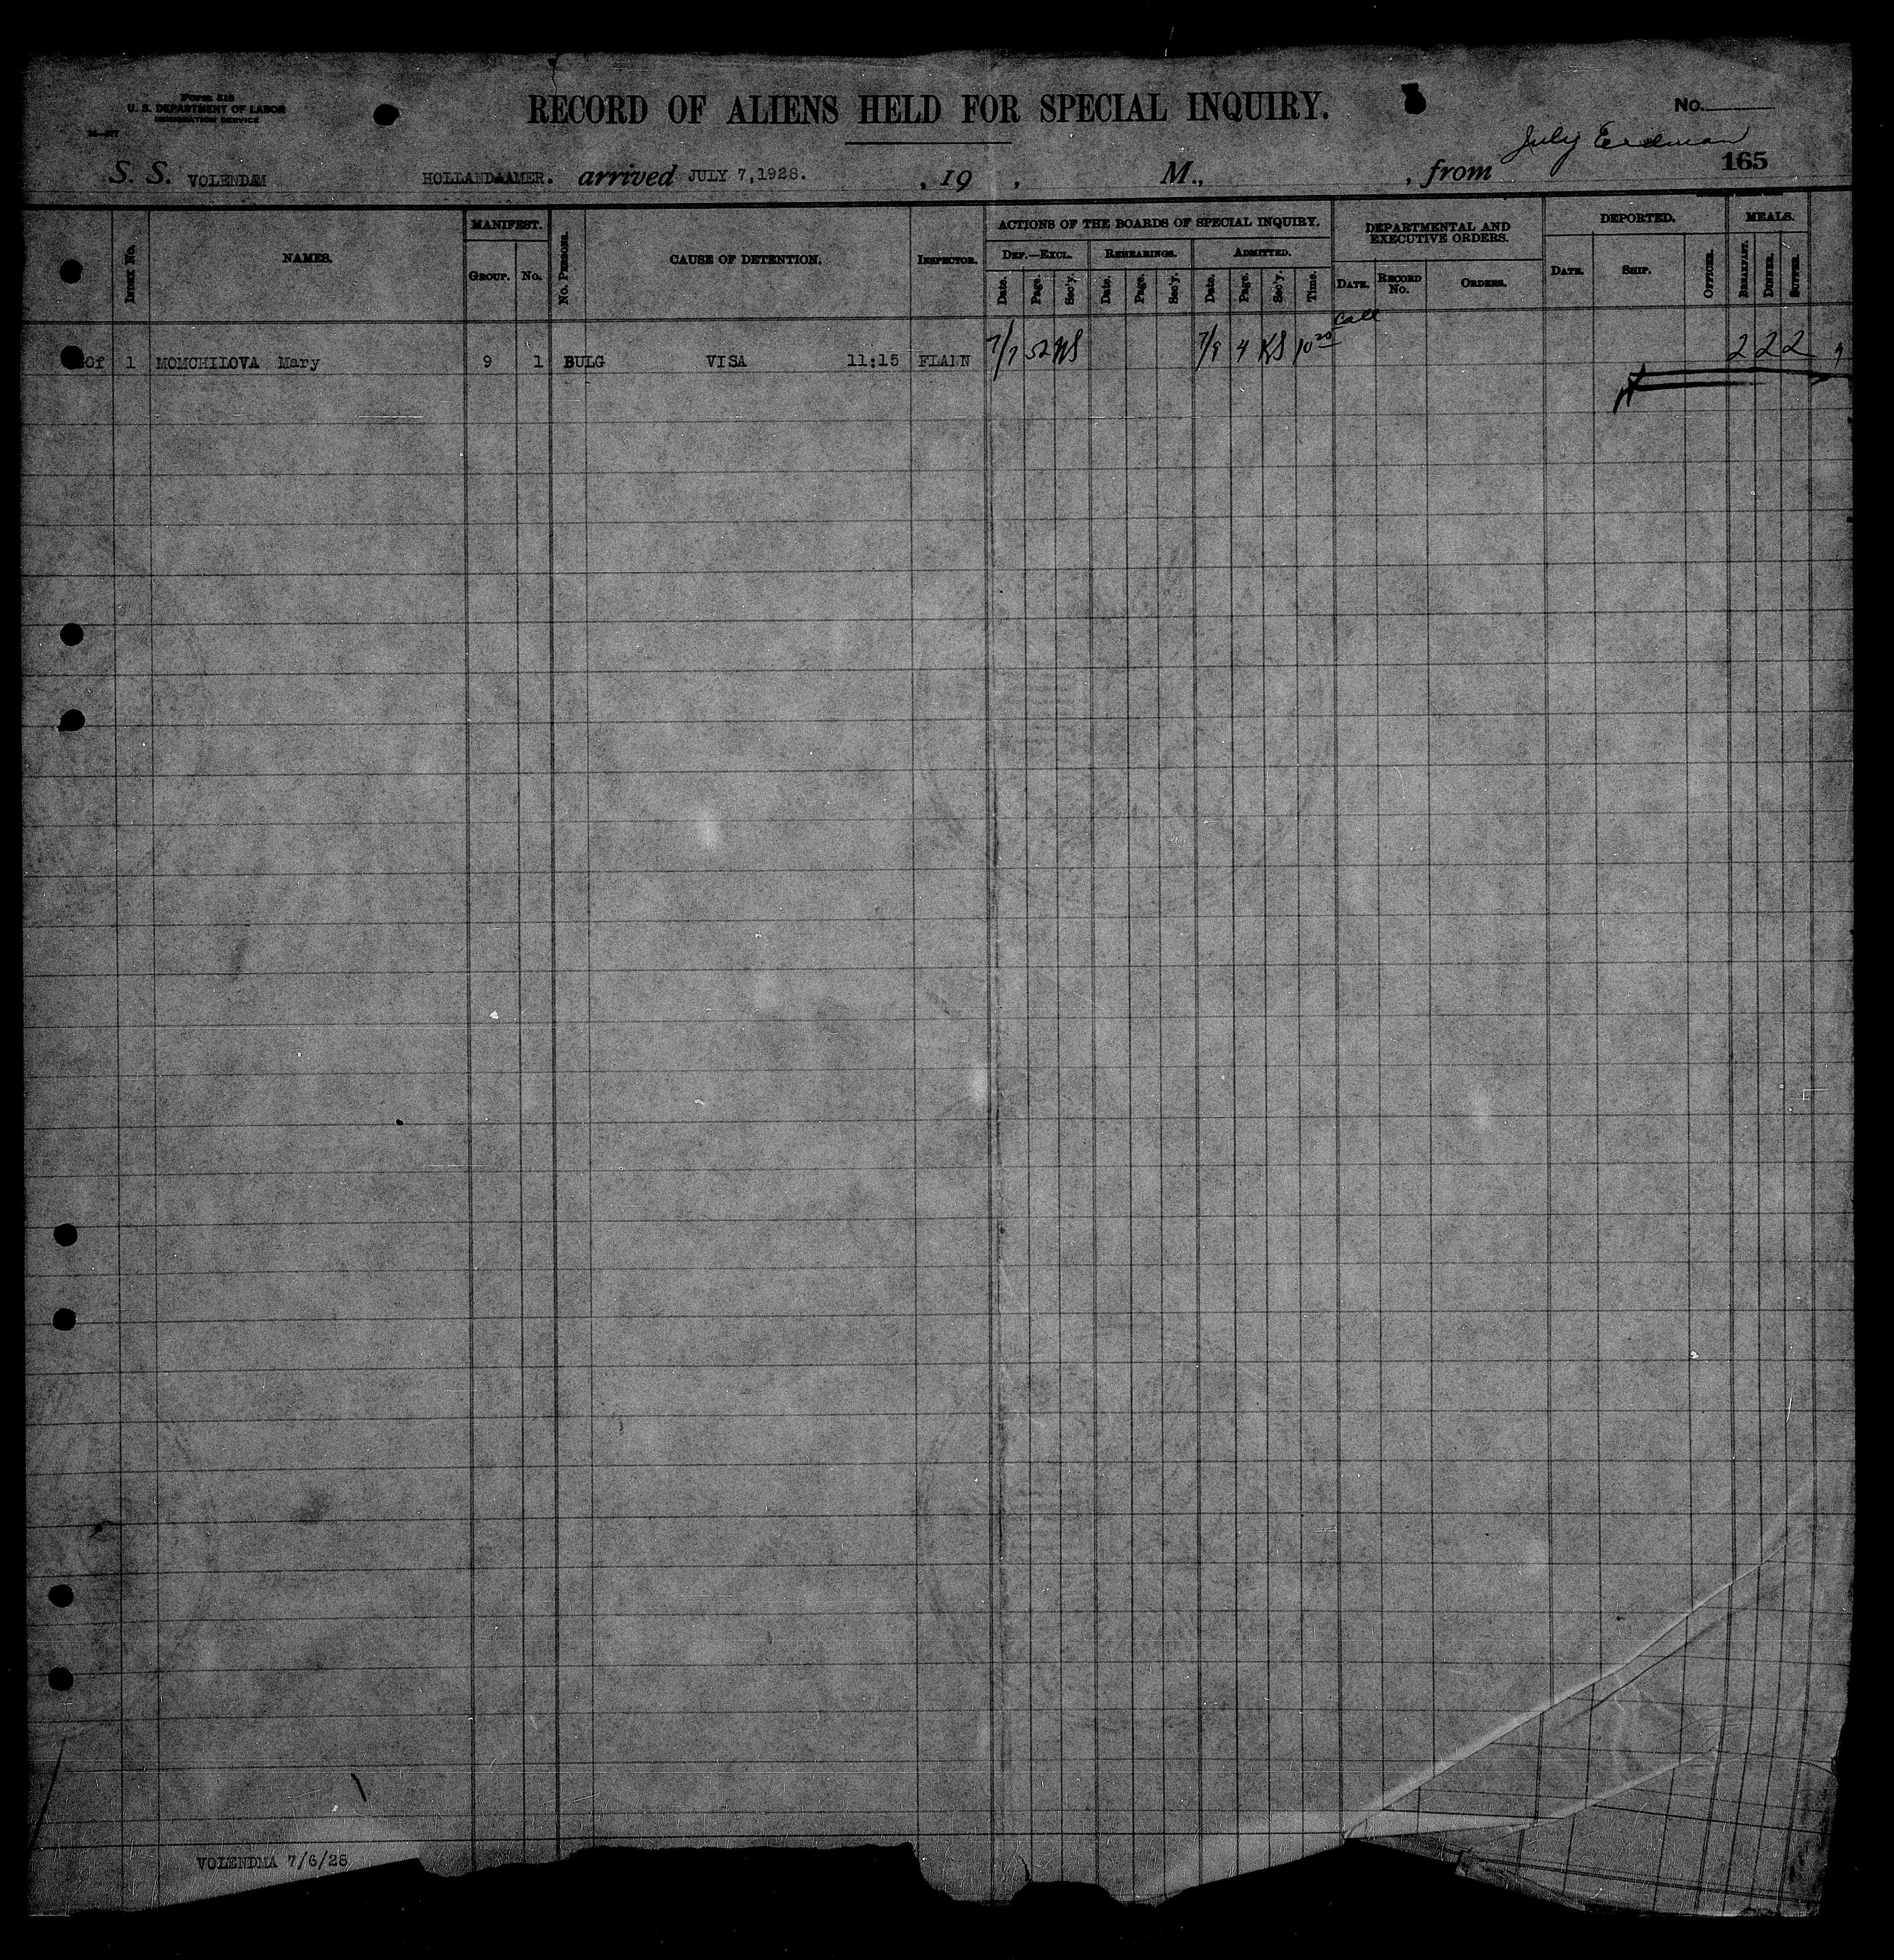 Form 518
U. S. DEPARTMENT OF LABOR
IMMIGRATION SERVICE
RECORD OF ALIENS HELD FOR SPECIAL INQUIRY.
No.
July Erdman
165
S. S. VOLENDAM HOLLAND-AMER. arrived JULY 7,1928. , 19 , M., , from
INDEX No.
NAMES.
MANIFEST.
GROUP. No.
No. PERSONS.
CAUSE OF DETENTION.
INSPECTOR.
ACTIONS OF THE BOARDS OF SPECIAL INQUIRY.
DEF.—EXCL. REHEARINGS. ADMITTED.
Date. Page. Sec'y. Date. Page. Sec'y. Date. Page. Sec'y. Time.
DEPARTMENTAL AND
EXECUTIVE ORDERS.
DATE. RECORD No. ORDERS.
DEPORTED.
DATE. SHIP. OFFICER.
MEALS.
BREAKFAST. DINNER. SUPPER.
Call
Of 1 MOMCHILOVA Mary 9 1 BULG VISA 11:15 FLANN 7/7 52 WS 7/9 4 KS 10 20 2 2 2
VOLENDMA 7/6/28